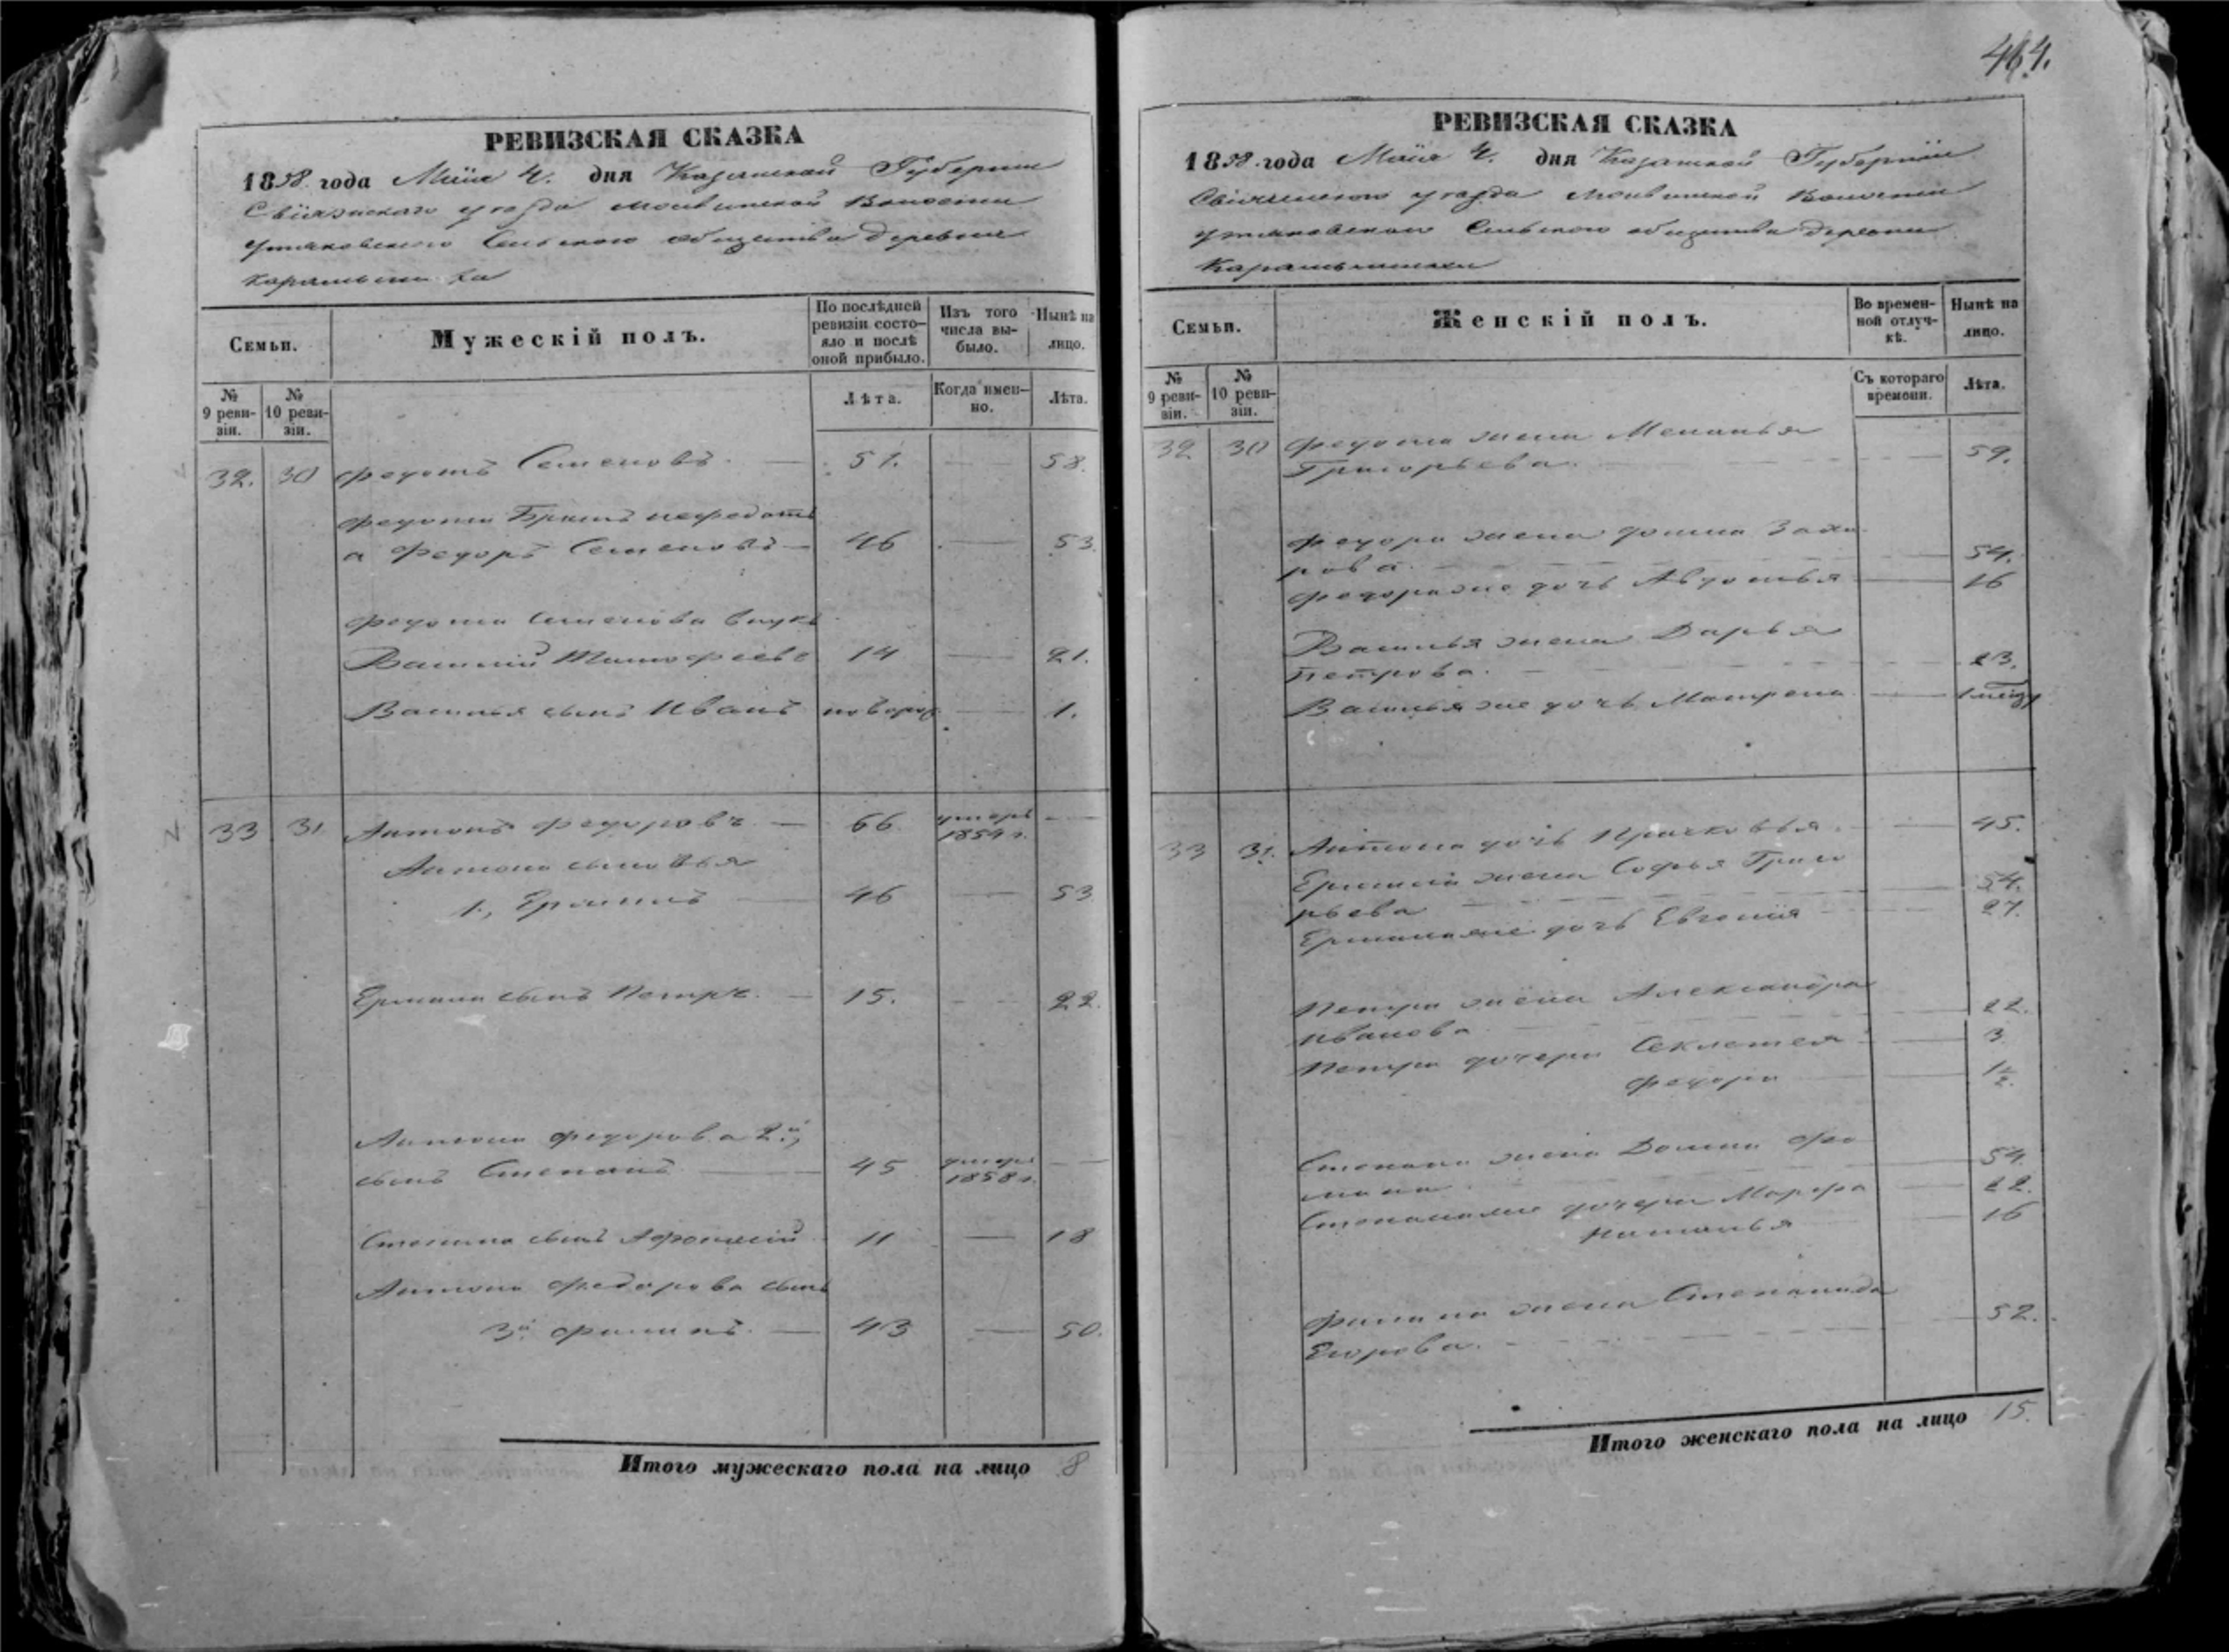 464.
РЕВИЗСКАЯ СКАЗКА
1858. года Маія 4. дня Казанской Губерніи
Свіяжскаго уезда Волости
Сельскаго общества деревни
Семьи.
Мужескій полъ.
По послѣдней ревизіи состо-
яло и послѣ
оной прибыло.
Изъ того
числа вы-
было.
Нынѣ на
лицо.
№
9 реви-
зіи.
№
10 реви-
зіи.
Лѣта.
Когда имен-
но.
Лѣта.
32. 30 Федотъ Семеновъ. 51. 58.
Федота Братъ нефедотъ
а Федоръ Семеновъ 46 53.
Федота Семенова внукъ
Василій Тимофеевъ 14 21.
Василья сынъ Иванъ новорож 1.
33 31 Антонъ Федоровъ 66 умеръ
1854 г.
Антона сыновья
1., Ермилъ 46 53
Ермила сынъ Петръ. 15. 22.
Антона Федорова 2й,
сынъ Степанъ 45 умеръ
1858 г.
Степана сынъ Афонасій 11 18
Антона Федорова сынъ
3й Филипъ. 43 50.
Итого мужескаго пола на лицо 8
РЕВИЗСКАЯ СКАЗКА
1858. года Маія 4. дня Казанской Губерніи
Свіяжскаго уезда Волости
Сельскаго общества деревни
Семьи.
Женскій полъ.
Во времен-
ной отлуч-
кѣ.
Нынѣ на
лицо.
№
9 реви-
зіи.
№
10 реви-
зіи.
Съ котораго
времени.
Лѣта.
32 30 Федота жена Меланья
Григорьева. 59.
Федора жена Домна Заха
рова. 54.
Федора же дочь Авдотья 16
Василья жена Дарья
Петрова. 23.
Василья же дочь Матрена
33 31. Антона дочь Прасковья. 45.
Ермила жена Софья Григо
рьева 54.
Ермила же дочь Евгенія 27.
Петра жена Александра
Иванова 22.
Петра дочери Секлетея 3
Федора 1½.
Степана жена Домна Фо
мина 54.
Степана же дочери Марфа 22.
Наталья 16
Филипа жена Степанида
Егорова. 52.
Итого женскаго пола на лицо 15.